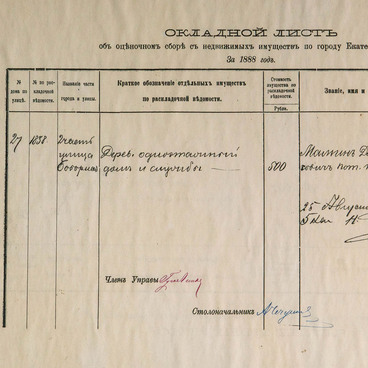 ОКЛАДНОЙ ЛИСТЪ
объ оцѣночномъ сборѣ съ недвижимыхъ имуществъ по городу Екате
За 1888 годъ.
№ дома по улицѣ.
№ по раскладочной вѣдомости.
Названіе части города и улицы.
Краткое обозначеніе отдѣльныхъ имуществъ по раскладочной вѣдомости.
Стоимость имущества по раскладочной вѣдомости.
Рубли.
Званіе, имя и
27
1838.
2 часть
Дерев. одноэтажный
500
Маминъ
улица
домъ и службы
овичъ пот.
Соборная
25 Августа
Члена Управы
Столоначальникъ